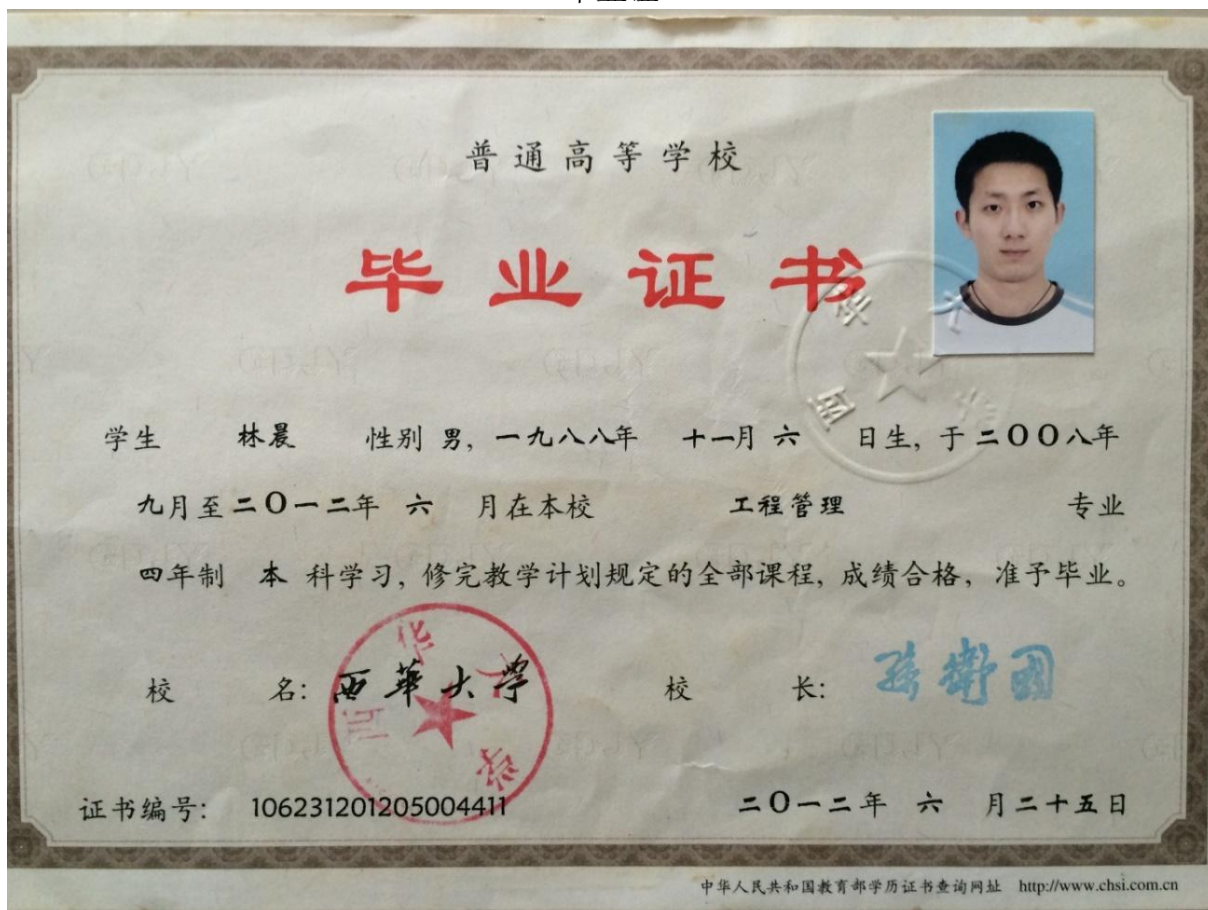 普通高等学校
毕业证书
学生 林晨 性别 男, 一九八八年 十一月 六 日生, 于 二〇〇八年
九月至二〇一二年 六 月在本校 工程管理 专业
四年制 本 科学习, 修完教学计划规定的全部课程, 成绩合格, 准予毕业。
校 名: 西華大学 校 长: 孫衛國
西华大学
证书编号: 106231201205004411 二〇一二年 六 月二十五日
中华人民共和国教育部学历证书查询网址 http://www.chsi.com.cn